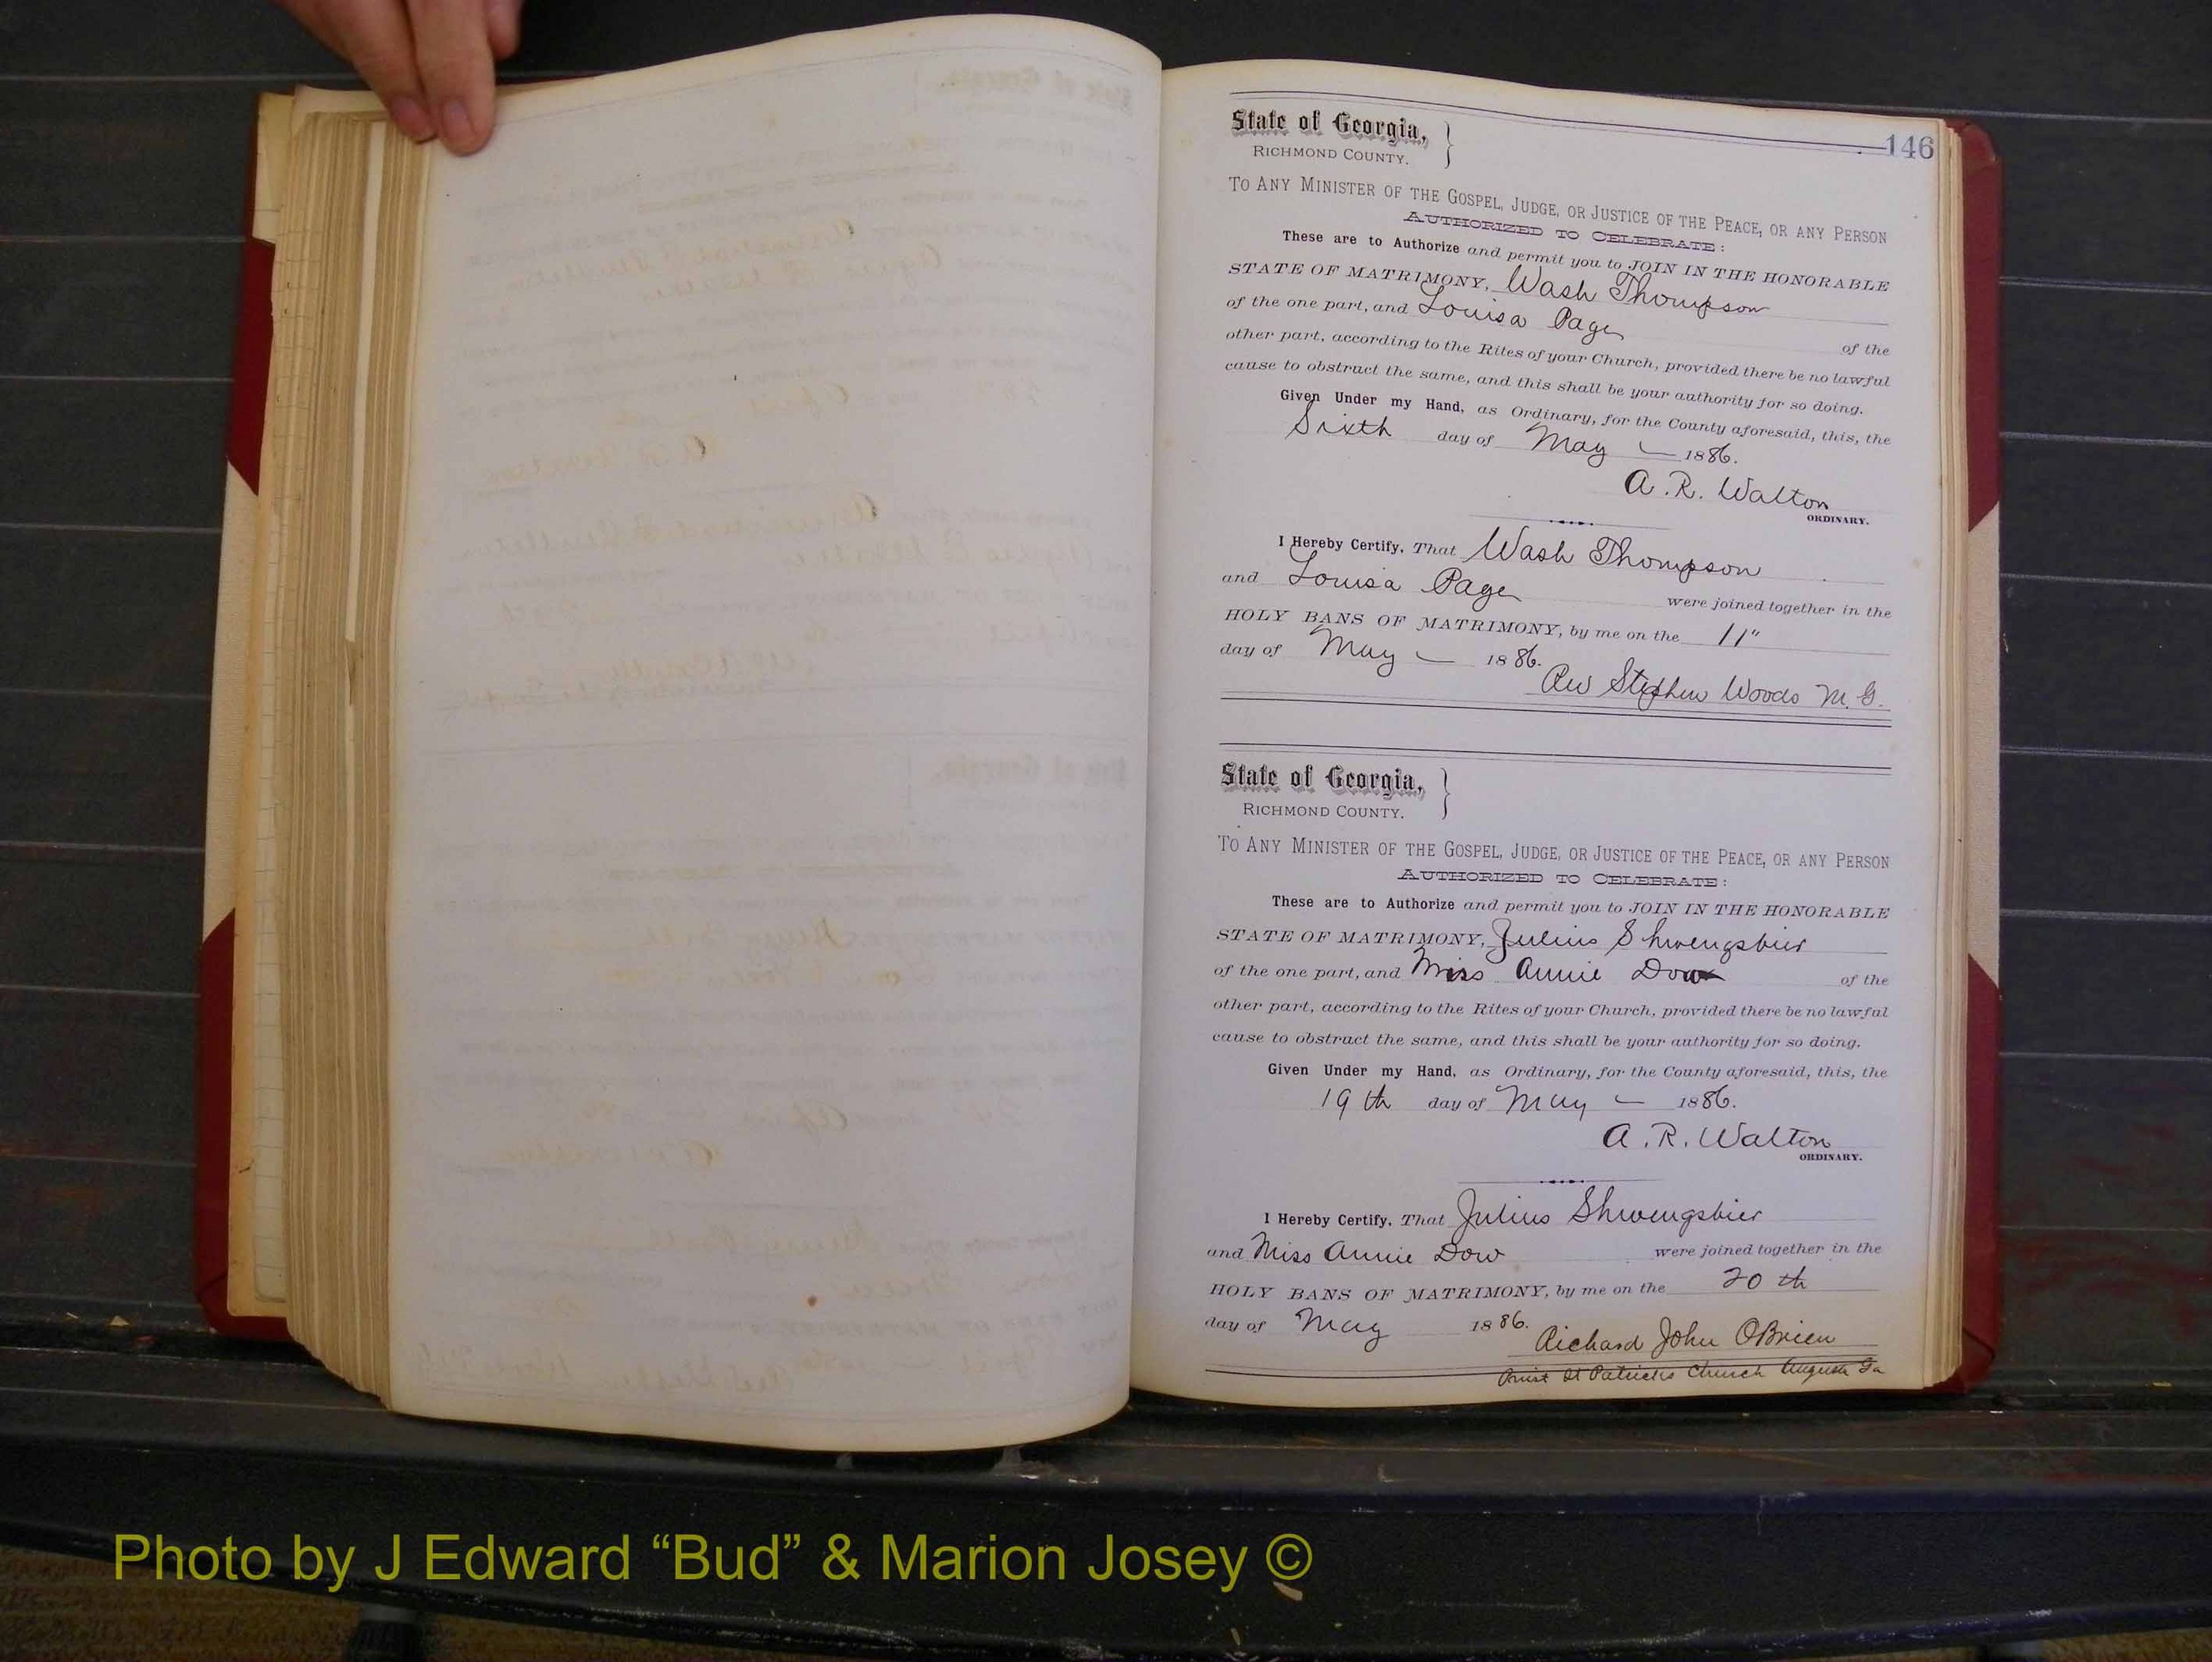 146
State of Georgia, }
RICHMOND COUNTY.
TO ANY MINISTER OF THE GOSPEL, JUDGE, OR JUSTICE OF THE PEACE, OR ANY PERSON
AUTHORIZED TO CELEBRATE:
These are to Authorize and permit you to JOIN IN THE HONORABLE
STATE OF MATRIMONY, Wash Thompson
of the one part, and Louisa Page of the
other part, according to the Rites of your Church, provided there be no lawful
cause to obstruct the same, and this shall be your authority for so doing.
Given Under my Hand, as Ordinary, for the County aforesaid, this, the
Sixth day of May 1886.
A. R. Walton
ORDINARY.
I Hereby Certify, That Wash Thompson
and Louisa Page were joined together in the
HOLY BANS OF MATRIMONY, by me on the 11"
day of May 1886.
Rev Stephen Woods M. G.
State of Georgia, }
RICHMOND COUNTY.
TO ANY MINISTER OF THE GOSPEL, JUDGE, OR JUSTICE OF THE PEACE, OR ANY PERSON
AUTHORIZED TO CELEBRATE:
These are to Authorize and permit you to JOIN IN THE HONORABLE
STATE OF MATRIMONY, Julius Shwengsbier
of the one part, and Miss Annie Dow of the
other part, according to the Rites of your Church, provided there be no lawful
cause to obstruct the same, and this shall be your authority for so doing.
Given Under my Hand, as Ordinary, for the County aforesaid, this, the
19th day of May 1886.
A. R. Walton
ORDINARY.
I Hereby Certify, That Julius Shwengsbier
and Miss Annie Dow were joined together in the
HOLY BANS OF MATRIMONY, by me on the 20th
day of May 1886.
Richard John OBrien
Priest St Patricks Church Augusta Ga
Photo by J Edward “Bud” & Marion Josey ©